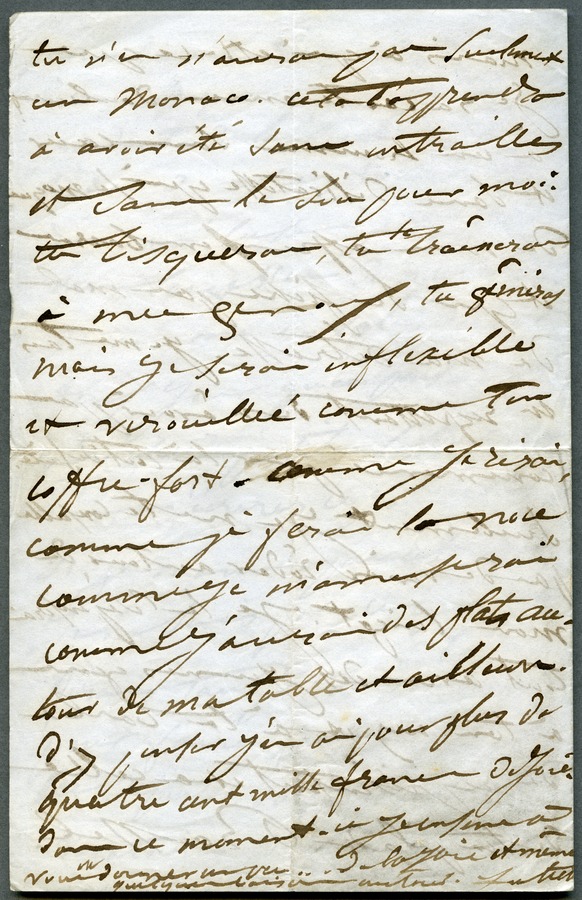 tu n'en n'auras pas seulement
un Monaco. cela t'apprendra
à avoir été sans entrailles
et sans le sou pour moi.
tu bisqueras, tu te traîneras
à mes genoux, tu gémiras
mais je serai inflexible
et verouillée comme ton
coffre-fort. comme je rirai,
comme je ferai la noce
comme je m'amuserai
comme j'aurai des plats au-
tour de ma table et ailleurs.
d'y penser j'en ai pour plus de
quatre cent mille francs de joie
dans ce moment-ci je pense à
vous donner un peu ... de la joie et même
autour.